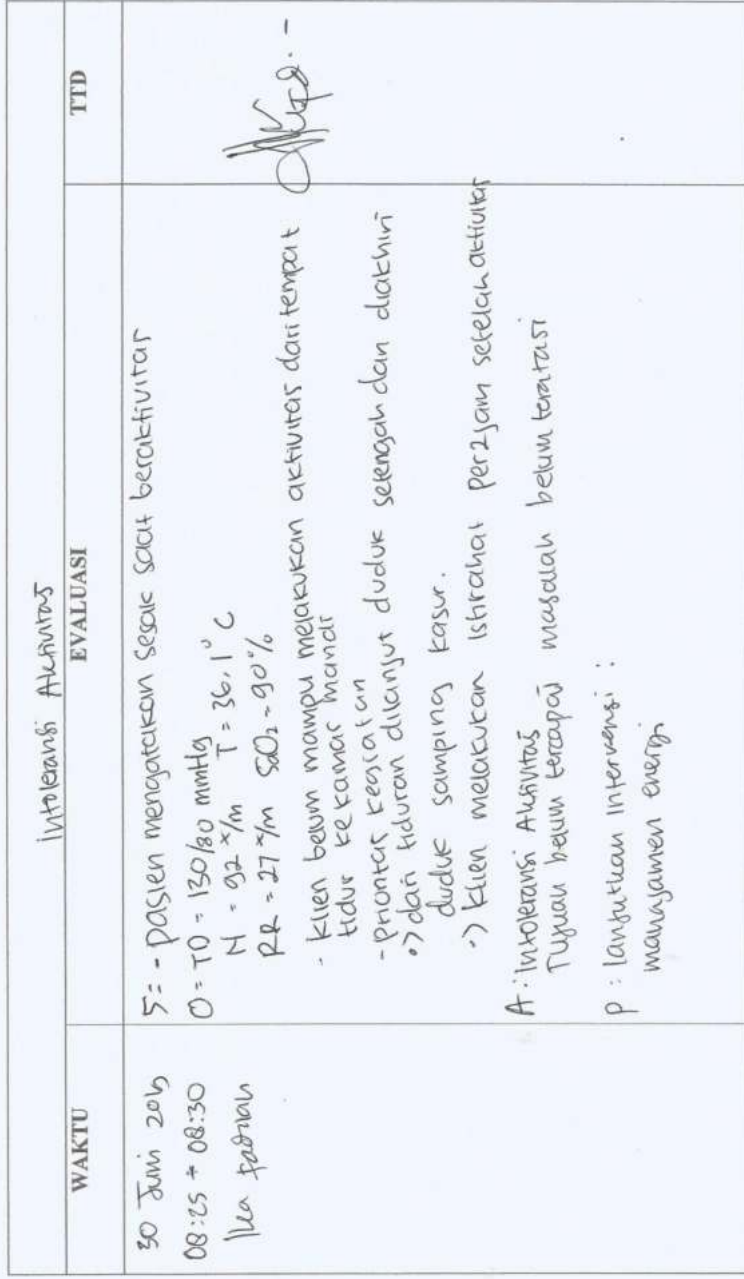 Intoleransi Aktivitas
WAKTU
EVALUASI
TTD
30 Juni
08:25 + 08:30
Ika
S: - pasien mengatakan sesak saat beraktivitas
O = TD = 130/80 mmHg
N = 92 x/m T = 36,1° C
RR = 27 x/m SaO₂ = 90%
- Klien belum mampu melakukan aktivitas dari tempat
tidur ke kamar mandi
- Prioritas kegiatan
•) dari tiduran dilanjut duduk setengah dan diakhiri
duduk samping kasur.
•) klien melakukan istirahat per2jam setelah aktivitas
A : Intoleransi Aktivitas
Tujuan belum tercapai masalah belum teratasi
P : lanjutkan intervensi :
manajamen energi